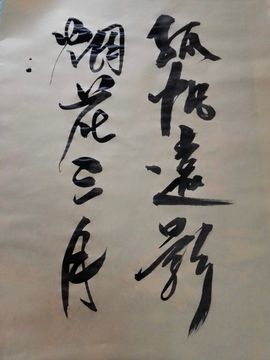 孤帆遠影
烟花三月